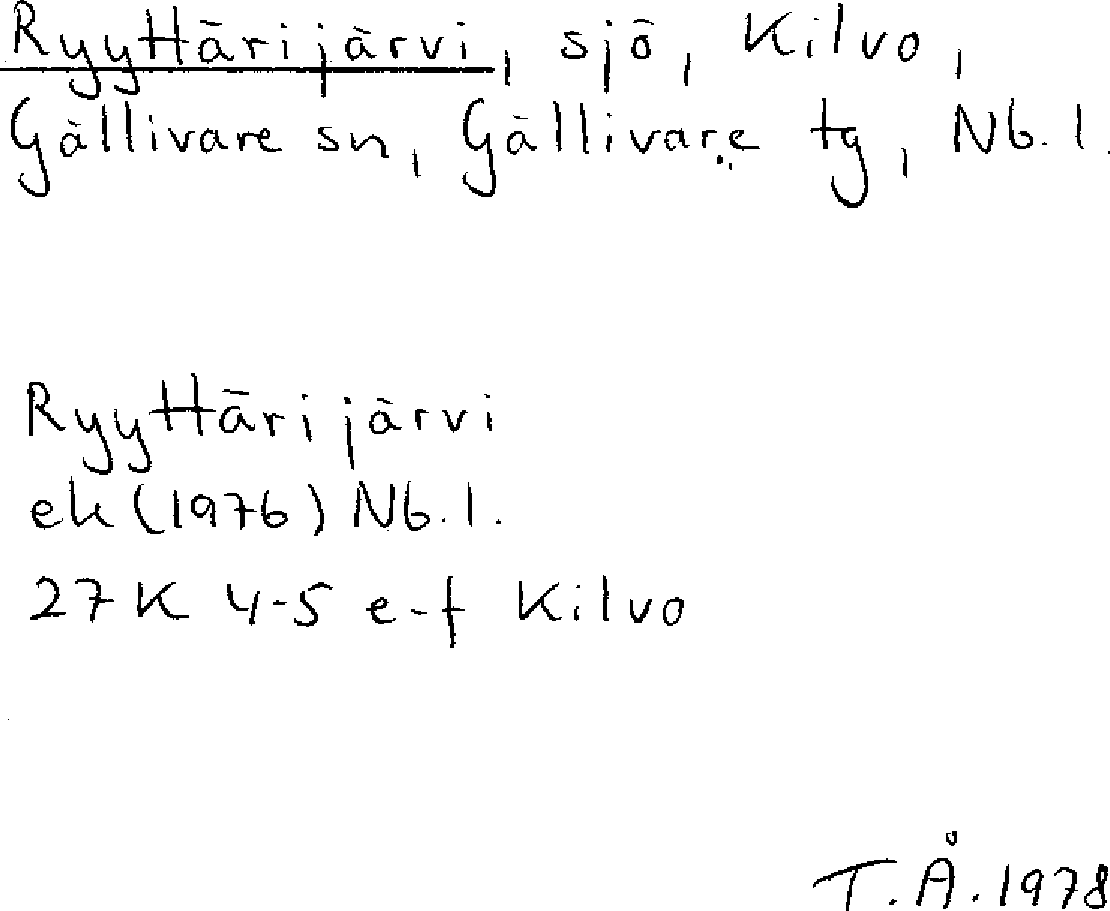 Ryyttärijärvi, sjö, Kilvo,
Gällivare sn, Gällivare tg, Nb. l.
Ryyttärijärvi
ek (1976) Nb. l.
27 K 4-5 e-f Kilvo
T. Å. 1978